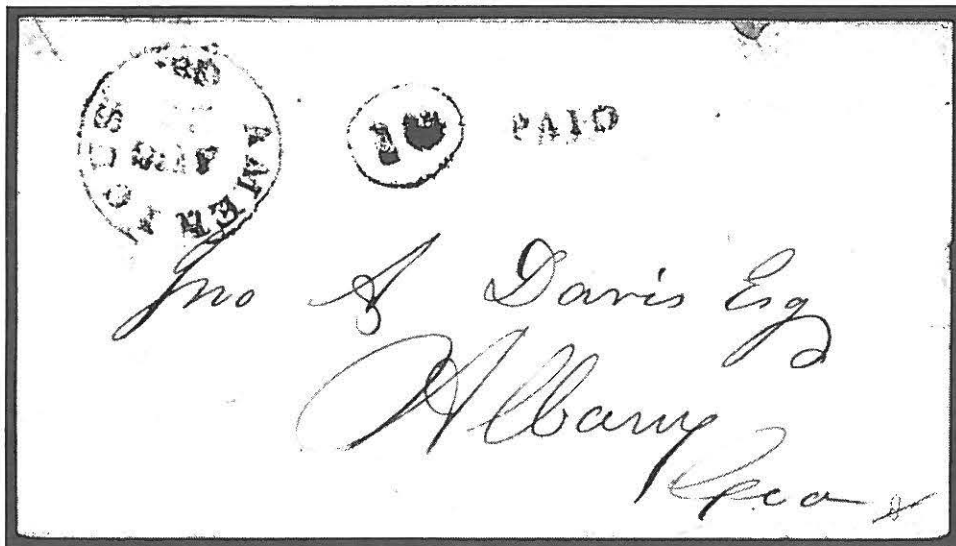 AMERICUS
10 PAID
Jno A Davis Esq
Albany
Geo